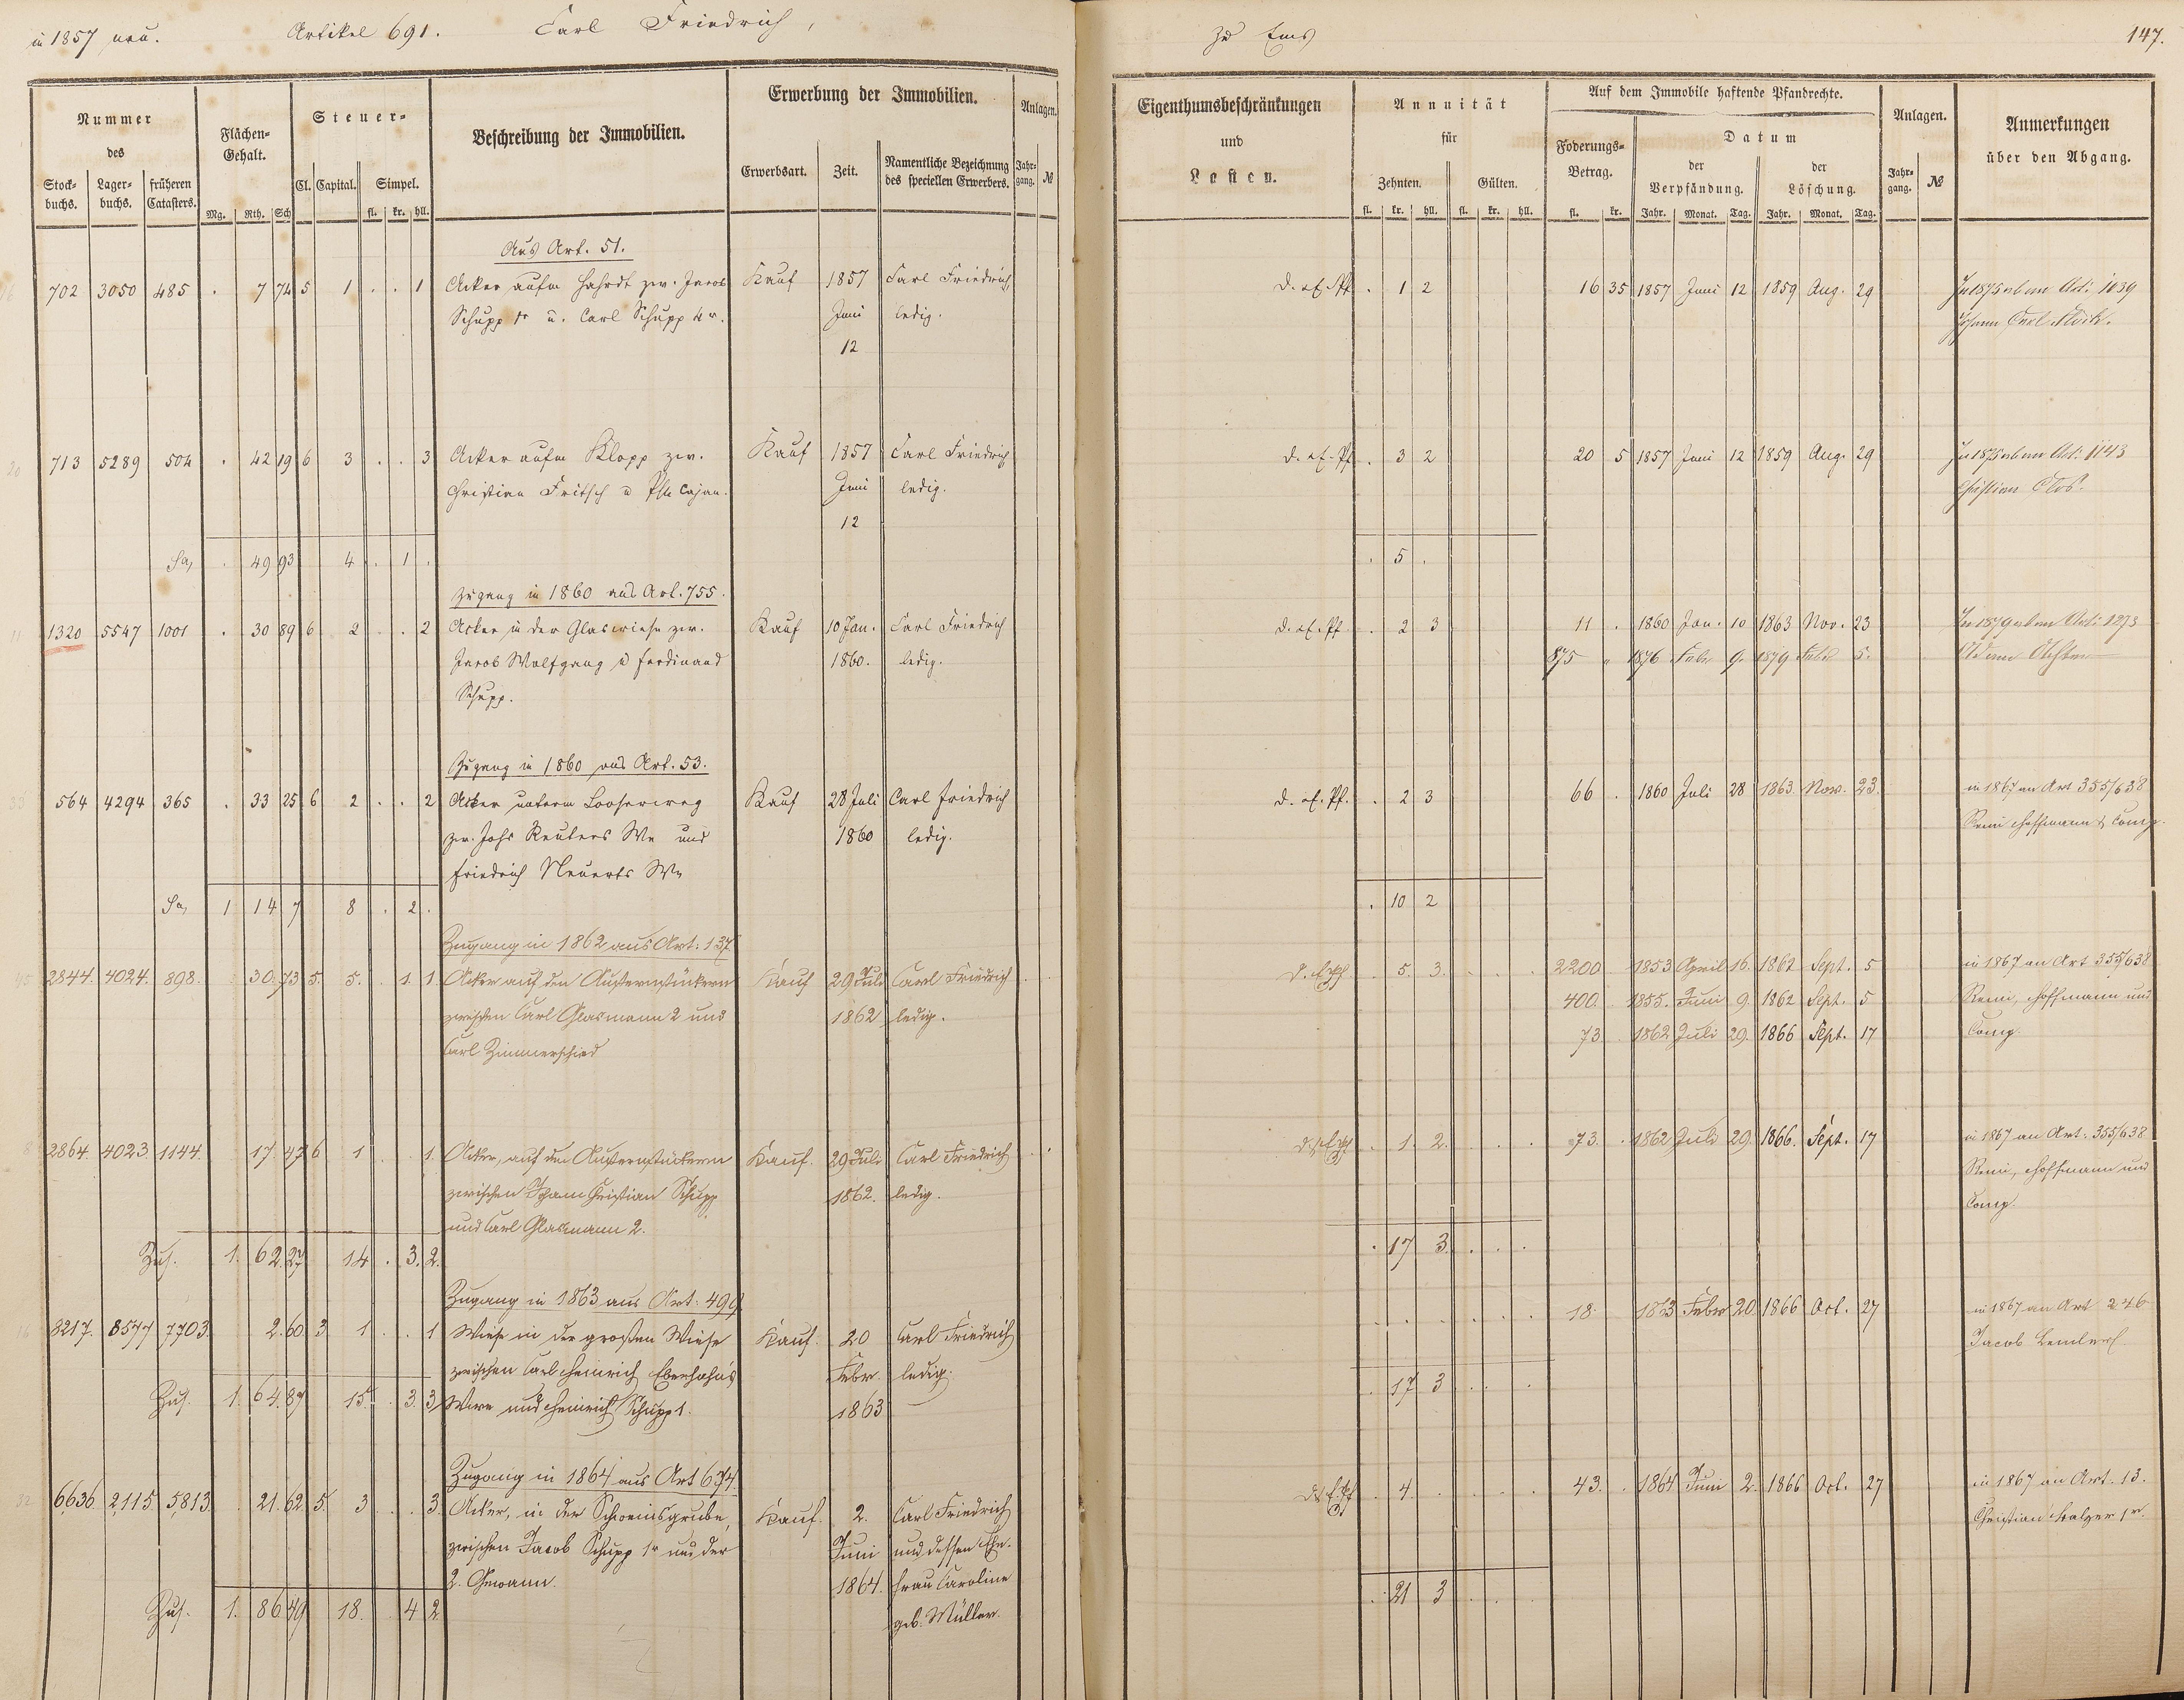 in 1857 neu. Artikel 691. Carl Friedrich, zu Ems 147.
Nummer des
Stock-buchs. Lager-buchs. früheren Catasters.
Flächen-Gehalt.
Mg. Rth. Sch
Steuer-
Cl. Capital. Simpel.
fl. kr. hll.
Beschreibung der Immobilien.
Erwerbung der Immobilien.
Erwerbsart. Zeit. Namentliche Bezeichnung des speciellen Erwerbers.
Anlagen.
Jahr-gang. №
Eigenthumsbeschränkungen
und
Lasten.
Annuität
für
Zehnten. Gülten.
fl. kr. hll. fl. kr. hll.
Auf dem Immobile haftende Pfandrechte.
Foderungs-Betrag.
fl. kr.
Datum
der Verpfändung. der Löschung.
Jahr. Monat. Tag. Jahr. Monat. Tag.
Anlagen.
Jahr-gang. №
Anmerkungen
über den Abgang.
Aus Art. 51.
702 3050 485 . 7 74 5 1 . . 1 Acker aufm Hahrdt zw. Jacob Kauf 1857 Carl Friedrich . 1 2 16 35 1857 Juni 12 1859 Aug. 29
Schupp 1r u. Carl Schupp 4r. Juni ledig.
12
713 5289 504 . 42 19 6 3 . . 3 Acker aufm Klopp zw. Kauf 1857 Carl Friedrich . 3 2 20 5 1857 Juni 12 1859 Aug. 29
Christian Fritsch u Phil Cajan. Juni ledig. Christian
12
Sa, . 49 93 4 . 1 . . 5 .
Zugang in 1860 aus Art. 755.
1320 5547 1001 . 30 89 6 2 . . 2 Acker in der Glaswiese zw. Kauf 10 Jan. Carl Friedrich . 2 3 11 . 1860 Jan. 10 1863 Nov. 23
Jacob Wolfgang u Ferdinand 1860. ledig. 875 1876 Febr 9. 1879 Febr 5.
Schupp.
Zugang in 1860 aus Art. 53.
564 4294 365 . 33 25 6 2 . . 2 Acker unterm Looserweg Kauf 28 Juli Carl Friedrich . 2 3 66 . 1860 Juli 28 1863. Nov. 23. in 1867 an Art 355/638
zw. Johs Reuters We und 1860 ledig. Remi Hoffmann & Comp.
Friedrich Neuerts We
Sa, 1 14 7 8 . 2 . . 10 2
Zugang in 1862 aus Art: 137
2844. 4024. 898. 30. 73 5. 5. 1. 1. Acker auf den Kauf 29 Juli Carl Friedrich . 5. 3. 2200. 1853 April 16. 1862 Sept. 5 in 1867 an Art 355/638
zwischen Carl Glasmann 2 und 1862 ledig. 400. 1855. Juni 9. 1862 Sept. 5 Remi, Hoffmann und
Carl Zimmerschied 73 1862 Juli 29. 1866 Sept. 17 Comp.
2864. 4023 1144. 17. 47 6 1 1. Acker, auf den Kauf. 29 Juli Carl Friedrich . 1. 2. 73. 1862 Juli 29 1866. Sept. 17 in 1867 an Art: 355/638
zwischen Johann Christian Schupp 1862. ledig. Remi, Hoffmann und
und Carl Glasmann 2. Comp.
Zus. 1. 62. 27 14 . 3. 2. . 17 3. . . .
Zugang in 1863 aus Art: 499
8217. 8577 7703. 2. 60 3 1 . . 1 Wiese in der großen Wiese Kauf. 20 Carl Friedrich 18. 1863 Febr 20 1866 Oct. 27 in 1867 an Art 246
zwischen Carl Heinrich Eberhahn's Febr. ledig. Jacob
Zus. 1. 64. 87 15. . 3. 3. Wwe und Heinrich Schupp 1. 1863 . 17 3 . . .
Zugang in 1864 aus Art 674.
6636 2115 5813 . 21. 62 5. 3 . . 3. Acker, in der Schweinsgrube, Kauf. 2. Carl Friedrich . 4. 43. 1864 Juni 2. 1866 Oct. 27 in 1867 an Art. 13.
zwischen Jacob Schupp 1r und der Juni und dessen Ehe- Christian Balzer 1r.
2. Gewann. 1864. frau Caroline
Zus. 1. 86 49 18. 4 2 geb. Müller. . 21 3